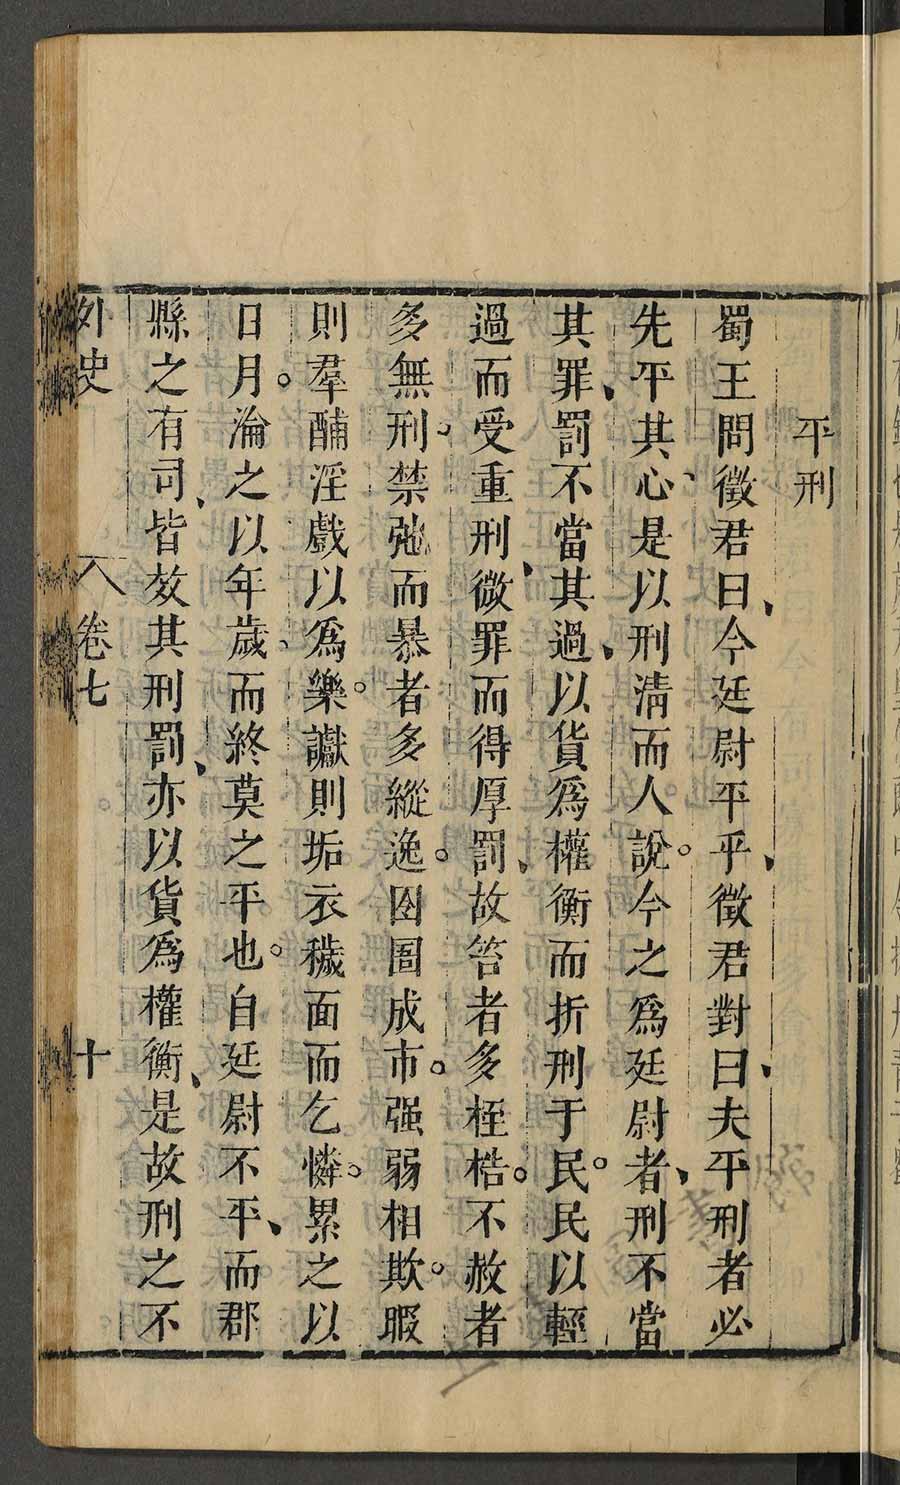 平刑
蜀王問徵君曰、今廷尉平乎、徵君對曰、夫平刑者必
先平其心、是以刑淸而人說。今之爲廷尉者、刑不當
其罪、罰不當其過、以貨爲權衡而折刑于民。民以輕
過而受重刑、微罪而得厚罰、故笞者多桎梏。不赦者
多無刑。禁弛而暴者多縱逸。囹圄成市。强弱相欺。暇
則羣酺淫戲以爲樂。讞則垢衣穢面而乞憐。累之以
日月。淪之以年歲、而終莫之平也。自廷尉不平、而郡
縣之有司、皆效其刑罰、亦以貨爲權衡、是故刑之不
外史 卷七 十